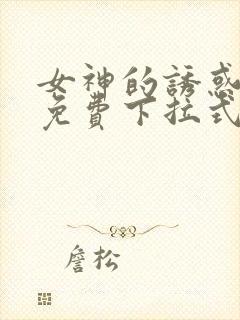 女神的誘惑
免費下拉式
詹松